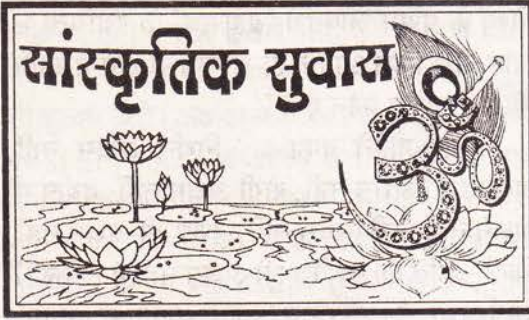 सांस्कृतिक सुवास
ॐ